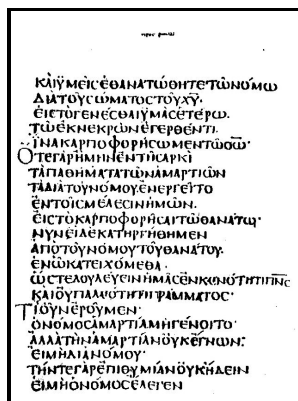 ΚΑΙΫΜΕΙCΕΘΑΝΑΤΩΘΗΤΕΤΩΝΟΜΩ
ΔΙΑΤΟΥCΩΜΑΤΟCΤΟΥΧ̅Υ̅·
ΕΙCΤΟΓΕΝΕCΘΑΙΫΜΑCΕΤΕΡΩ·
ΤΩΕΚΝΕΚΡΩΝΕΓΕΡΘΕΝΤΙ·
ΪΝΑΚΑΡΠΟΦΟΡΗCΩΜΕΝΤΩΘ̅Ω̅·
ΟΤΕΓΑΡΗΜΗΝΕΝΤΗCΑΡΚΙ
ΤΑΠΑΘΗΜΑΤΑΤΩΝΑΜΑΡΤΙΩΝ
ΤΑΔΙΑΤΟΥΝΟΜΟΥ.ΕΝΕΡΓΕΙΤΟ
ΕΝΤΟΙCΜΕΛΕCΙΝΗΜΩΝ.
ΕΙCΤΟΚΑΡΠΟΦΟΡΗCΑΙΤΩΘΑΝΑΤΩ·
ΝΥΝΕΙΔΕΚΑΤΗΡΓΗΘΗΜΕΝ
ΑΠΟΤΟΥΝΟΜΟΥΤΟΥΘΑΝΑΤΟΥ·
ΕΝΩΚΑΤΕΙΧΟΜΕΘΑ·
ΩCΤΕΔΟΥΛΕΥΕΙΝΗΜΑCΕΝΚΑΙΝΟΤΗΤΙΠ̅Ν̅C̅
ΚΑΙΟΥΠΑΛΑΙΟΤΗΤΙΓΡΑΜΜΑΤΟC·
ΤΙΟΥΝΕΡΟΥΜΕΝ·
ΟΝΟΜΟCΑΜΑΡΤΙΑΜΗΓΕΝΟΙΤΟ·
ΑΛΛΑΤΗΝΑΜΑΡΤΙΑΝΟΥΚΕΓΝΩΝ:
ΕΙΜΗΔΙΑΝΟΜΟΥ·
ΤΗΝΤΕΓΑΡΕΠΙΘΥΜΙΑΝΟΥΚΗΔΕΙΝ
ΕΙΜΗΟΝΟΜΟCΕΛΕΓΕΝ